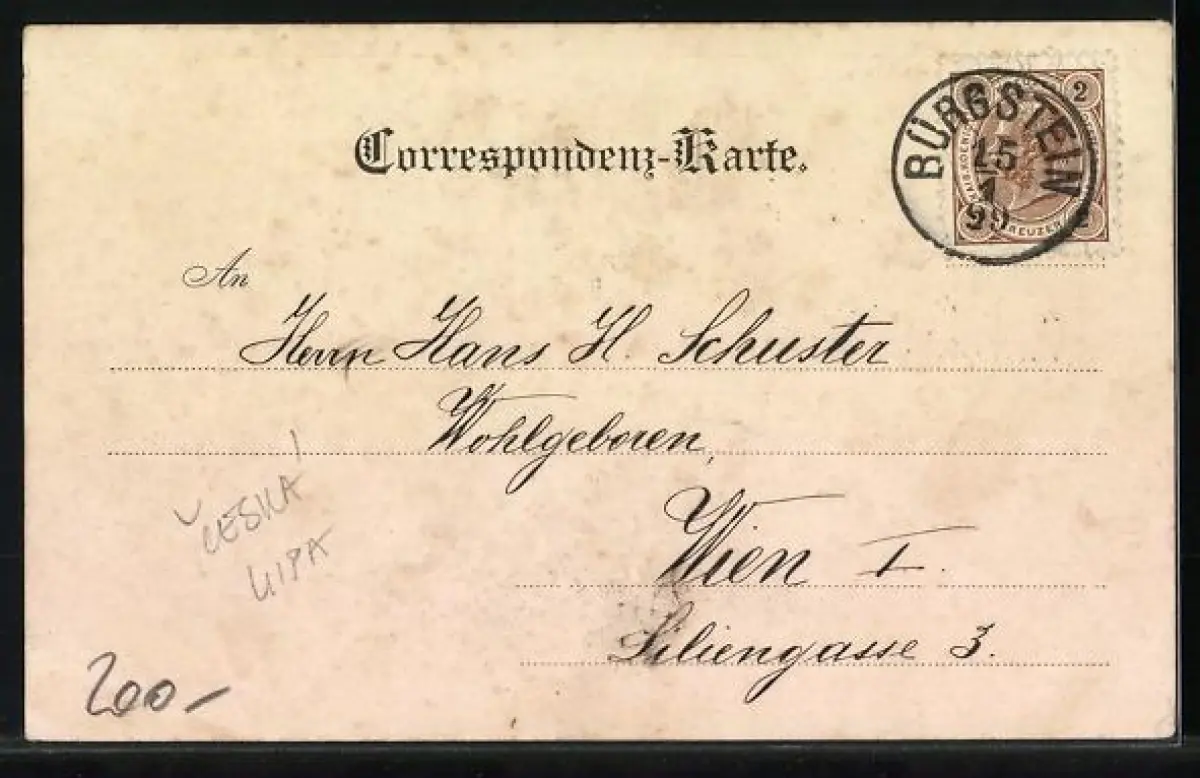 Correspondenz-Karte.
2
BÜRGSTEIN
15
1
99
KREUZER
An
Herrn Hans H. Schuster
Wohlgeboren,
Wien I.
Liliengasse 3.
ČESKÁ
LIPA
200-